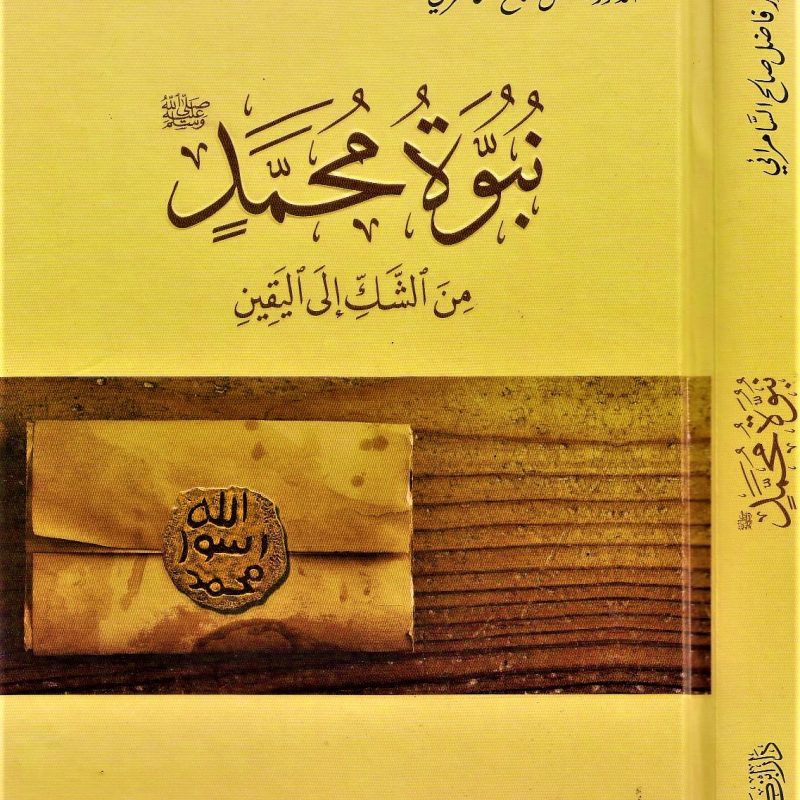 نُبُوَّةُ مُحَمَّدٍ ﷺ
مِنَ ٱلشَّكِّ إِلَى ٱلْيَقِينِ
الله
رسول
محمد
فاضل صالح السَّامرائي
نُبُوَّةُ مُحَمَّدٍ ﷺ